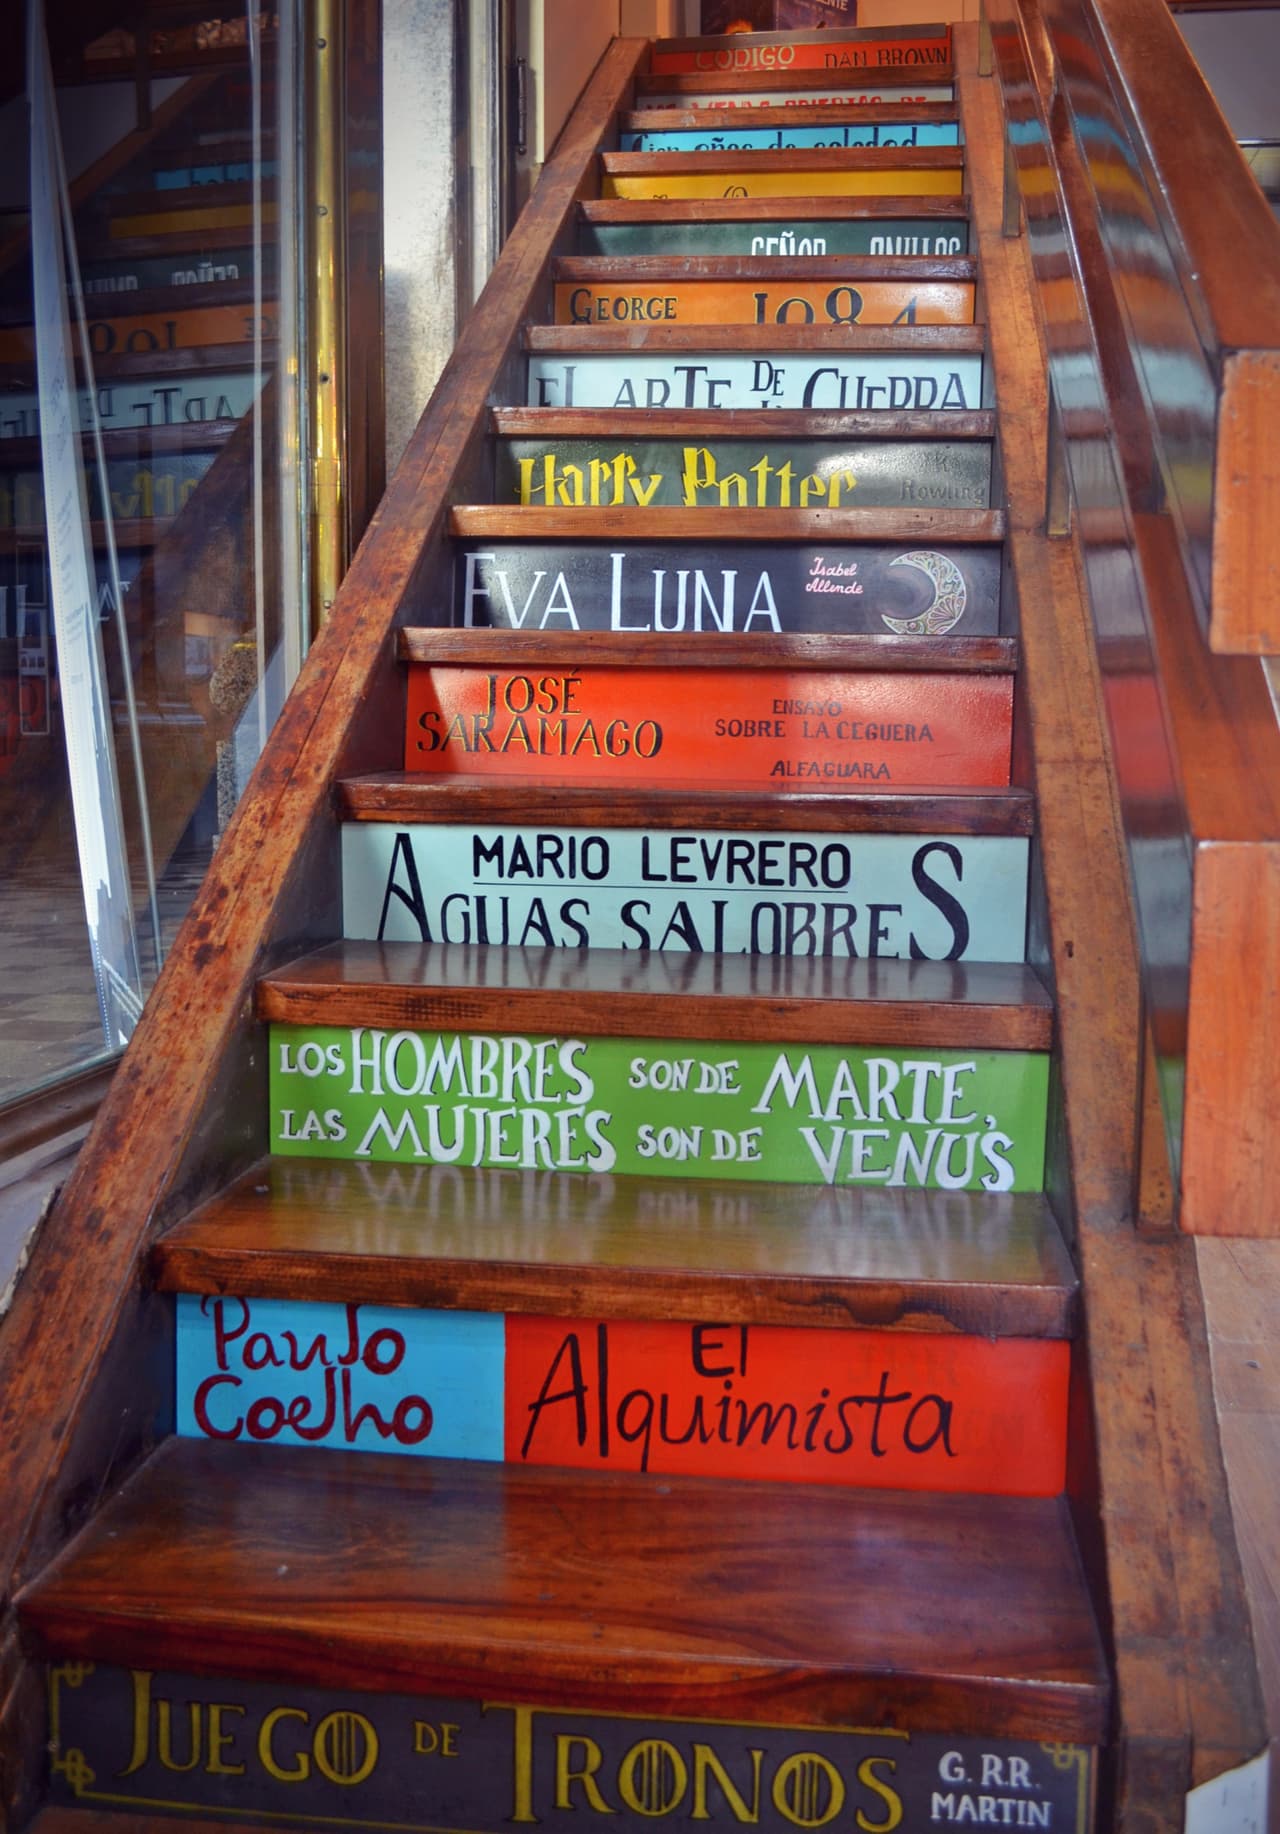 CODIGO DAN BROWN
LAS VENAS ABIERTAS DE
Cien años de soledad
SEÑOR ANILLOS
GEORGE 1984
EL ARTE DE LA GUERRA
Harry Potter JK Rowling
EVA LUNA Isabel Allende
JOSÉ SARAMAGO
ENSAYO SOBRE LA CEGUERA
ALFAGUARA
MARIO LEVRERO
AGUAS SALOBRES
LOS HOMBRES SON DE MARTE,
LAS MUJERES SON DE VENUS
Paulo Coelho
El Alquimista
JUEGO DE TRONOS G.R.R. MARTIN